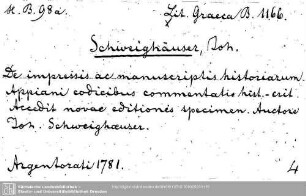 H. B. 98a.
Lit. Graeca B. 1166.
Schweighäuser, Joh.
De impressis ac manuscriptis historiarum
Appiani codicibus commentatio hist.-crit.
Accedit novae editionis specimen. Auctore
Joh. Schweighæuser.
Argentorati 1781.
4